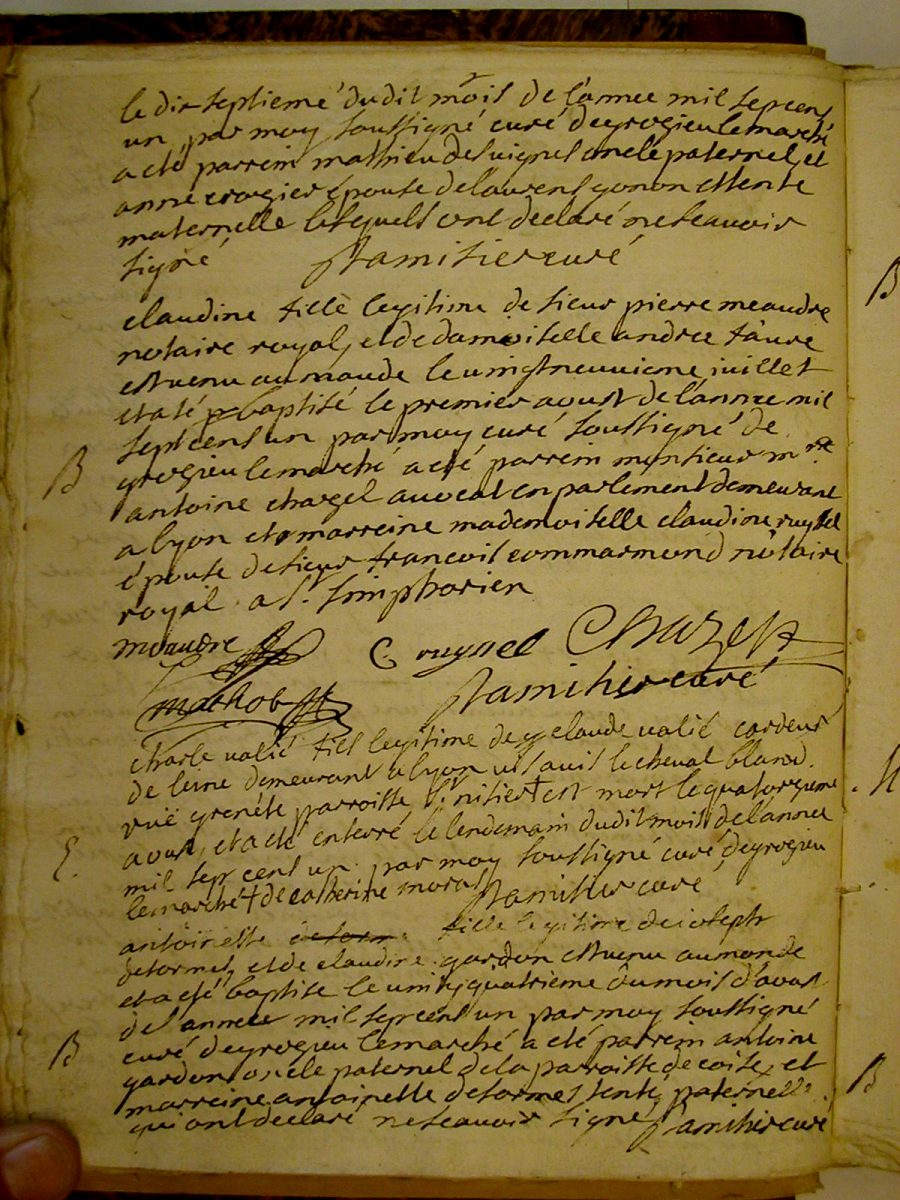 le dix septieme dudit mois de l'annee mil sept cens
un par moy soussigné curé deyrogieu lemarché
a eté parrein mathieu desvignes oncle paternel et
anne crogier épouse de laurens gonon et tente
maternelle lesquels ont declaré ne scauoir
signé Stamisier curé
claudine fille legitime de sieur pierre meaudre
notaire royal, et de damoiselle andree faure
est venu au monde le uingtneuuieme iuillet
et a té baptisé le premier aoust de l'annee mil
sept cens un par moy curé soussigné de
B
yrogieu lemarché a eté parrein monsieur mre
antoine chazel auocat en parlement demeurant
a lyon et marreine mademoiselle claudine ruynel
épouse de sieur francois commarmond nótaire
royal a st. simphorien
meaudre C ruynel Chazel
machob Stamisier curé
charle valié fils legitime de claude valié cardeur
de leine demeurant a lyon vis auis le cheval blanc
ruë grenéte parroisse st nisier + est mort le quatorzieme
aoust, et a eté enterré le lendemain dudit mois de l'annee
E.
mil sept cent un par moy soussigné curé deyrogieu
lemarché + de catherine moras Stamisier curé
antoinette fille legitime de ioseph
deformes, et de claudine gardon est venu au monde
et a eté baptise le uint quatrieme du mois d'aoust
del'annee mil sept cens un par moy soussigné
B
curé deyrogieu lemarché a eté parrein antoine
gardon oncle paternel de la parroisse de coise, et
marreine antoinette deformes tente paternelle
qui ont declaré ne scauoir signé Stamisier curé
B
M
B